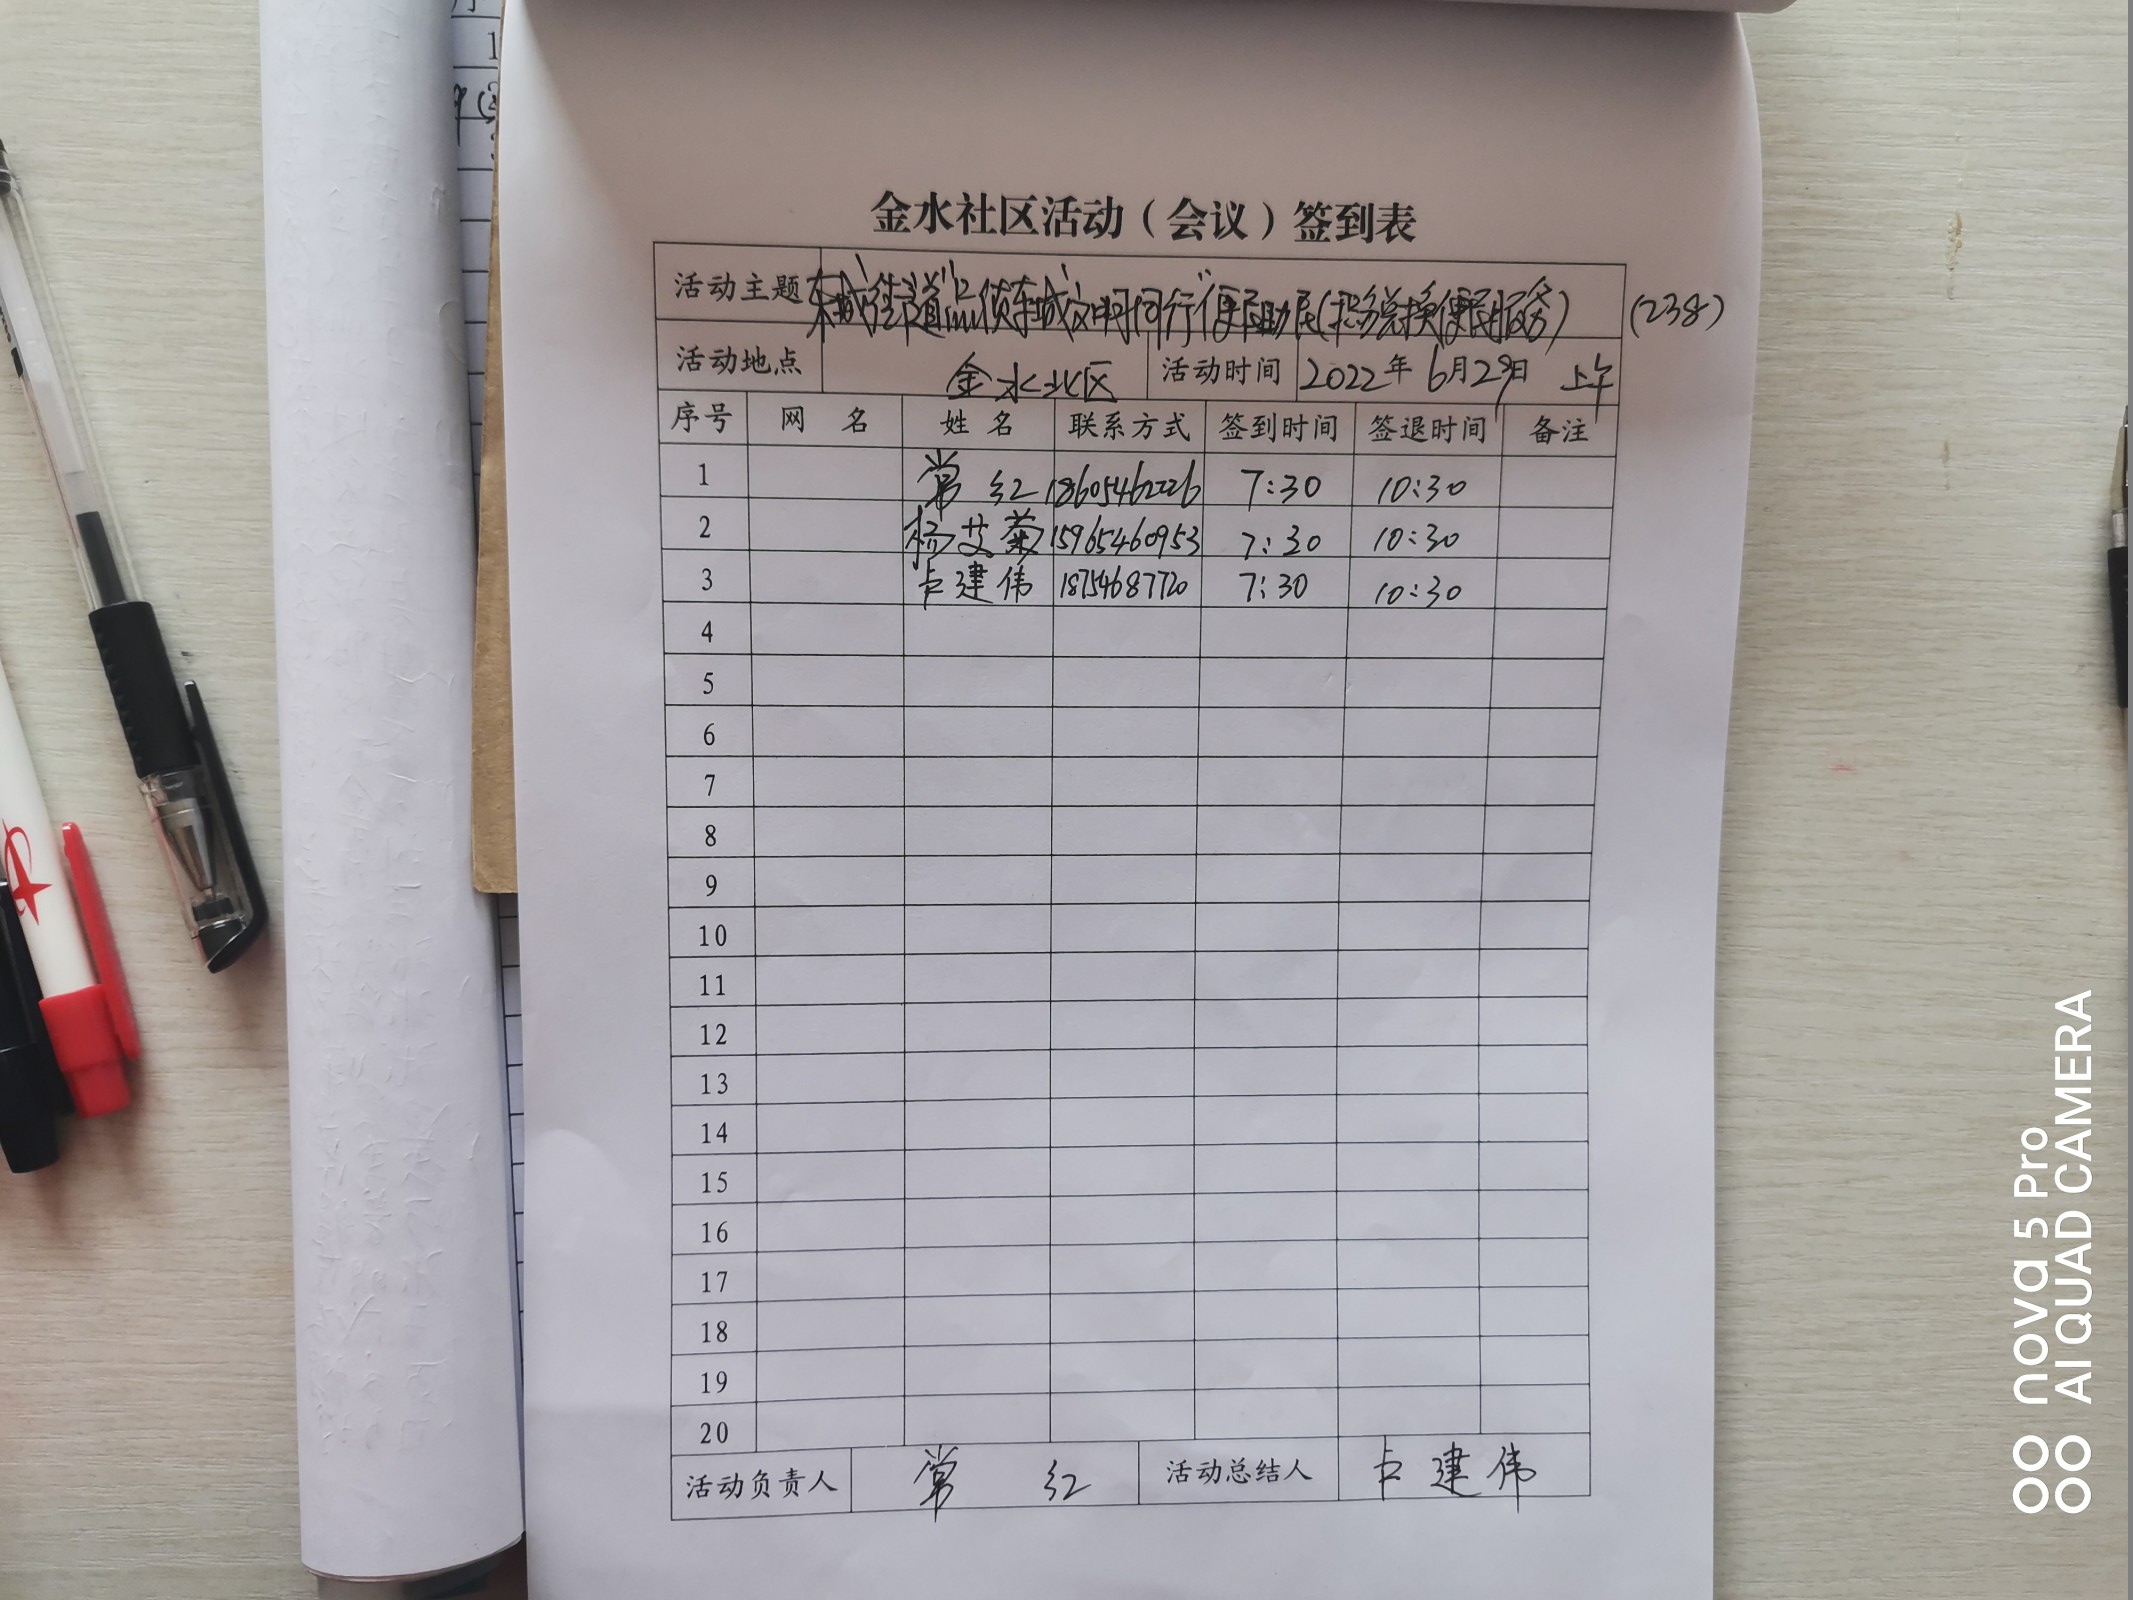 金水社区活动（会议）签到表
活动主题 东城街道"品质东城文明同行"便民助民(积分兑换便民服务) (238)
活动地点 金水北区 活动时间 2022年6月29日 上午
序号 网 名 姓 名 联系方式 签到时间 签退时间 备注
1 常 红 18605462226 7:30 10:30
2 杨艾菊 15965460953 7:30 10:30
3 卢建伟 18754687720 7:30 10:30
4
5
6
7
8
9
10
11
12
13
14
15
16
17
18
19
20
活动负责人 常 红 活动总结人 卢建伟
nova 5 Pro
AI QUAD CAMERA